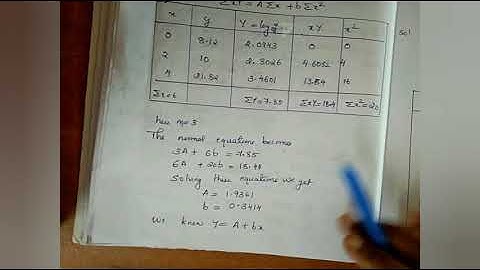 Σxy = AΣx + bΣx²
x y Y = log y xY x²
0 8.12 2.0943 0 0
2 10 2.3026 4.6052 4
4 31.32 3.4601 13.84 16
Σx=6 ΣY=7.85 ΣxY=18.4 Σx²=20
here n=3
The normal equations becomes
3A + 6b = 7.85
6A + 20b = 18.44
Solving these equations we get
A = 1.9361
b = 0.3414
We know Y = A + bx
Sol